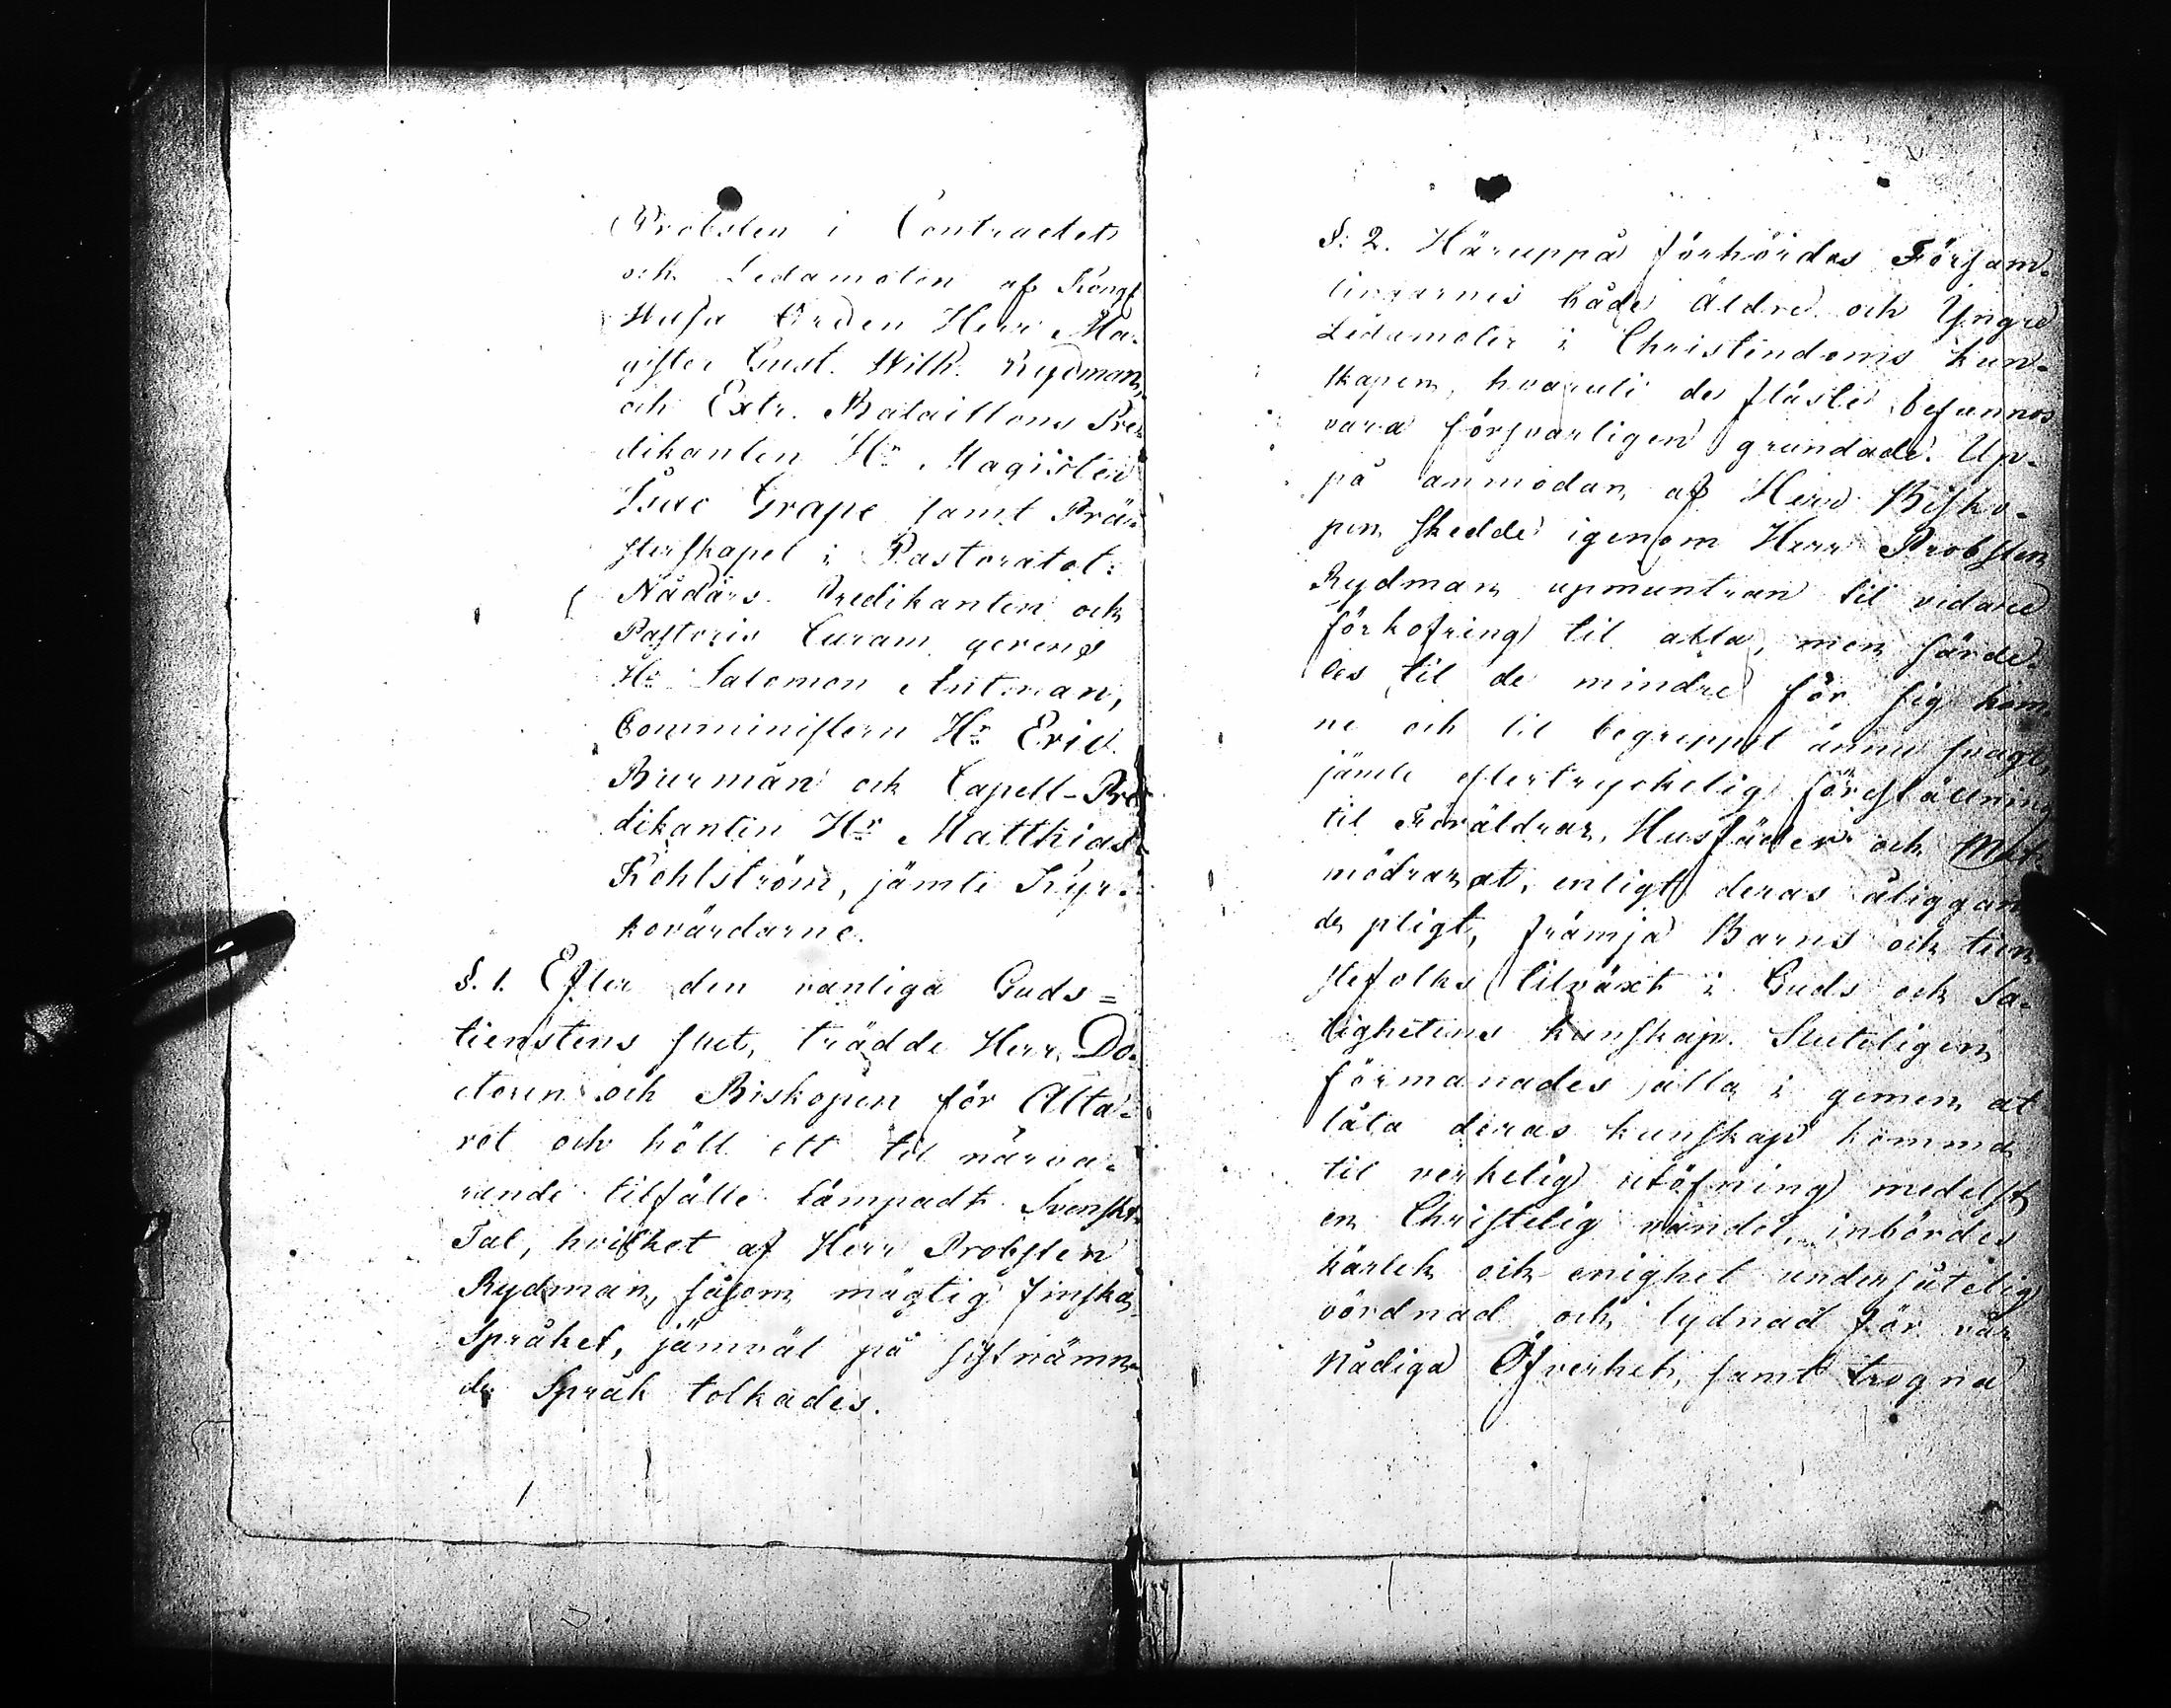 Probsten i Contractet
och Ledamoten af Kongl
Wasa Orden Herr Ma-
gister Gust. Wilh. Rydman,
och Extr. Bataillons Pre-
dikanten Hr Magister
Isac Grape samt Prä-
sterskapet i Pastoratet:
Nådårs Predikanten och
Pastoris Curam gerens
Hr Salomon Antman,
Comministern Hr Eric
Burman och Capell-Pre
dikanten Hr Matthias
Kohlström, jämte Kyr-
kovärdarne.
§. 1. Efter den vanliga Guds=
tienstens slut, trädde Herr Do-
ctoren och Biskopen för Alta-
ret och höll ett til närva-
rande tilfälle lämpadt Svenskt
Tal, hvilket af Herr Probsten
Rydman, såsom mägtig finska
Språket, jämväl på sistnämn-
de Språk tolkades.
§: 2. Häruppå förhördes Försam-
lingarnes både Äldre och Yngre
Ledamoter i Christendoms kun-
skapen, hvaruti de fläste befunnos
vara försvarligen grundade. Up-
på anmodan af Herr Bisko-
pen skedde igenom Herr Probsten
Rydman upmuntran til vidare
förkofring til alla, men särde-
les til de mindre för sig kom-
ne och til begreppet ännu svage,
jämte eftertryckelig föreställning
til Föräldrar, Husfäder och Mat-
mödrar at, enligt deras åliggan
de pligt, främja Barns och tien
stefolks tilväxt i Guds och Sa-
lighetens kunskap. Sluteligen
förmanades alla i gemen at
låta deras kunskap komma
til verkelig utöfning medelst
en Christelig vandel, inbördes
kärlek och enighet undersåtelig
vördnad och lydnad för vår
Nådiga Öfverhet, samt trogna